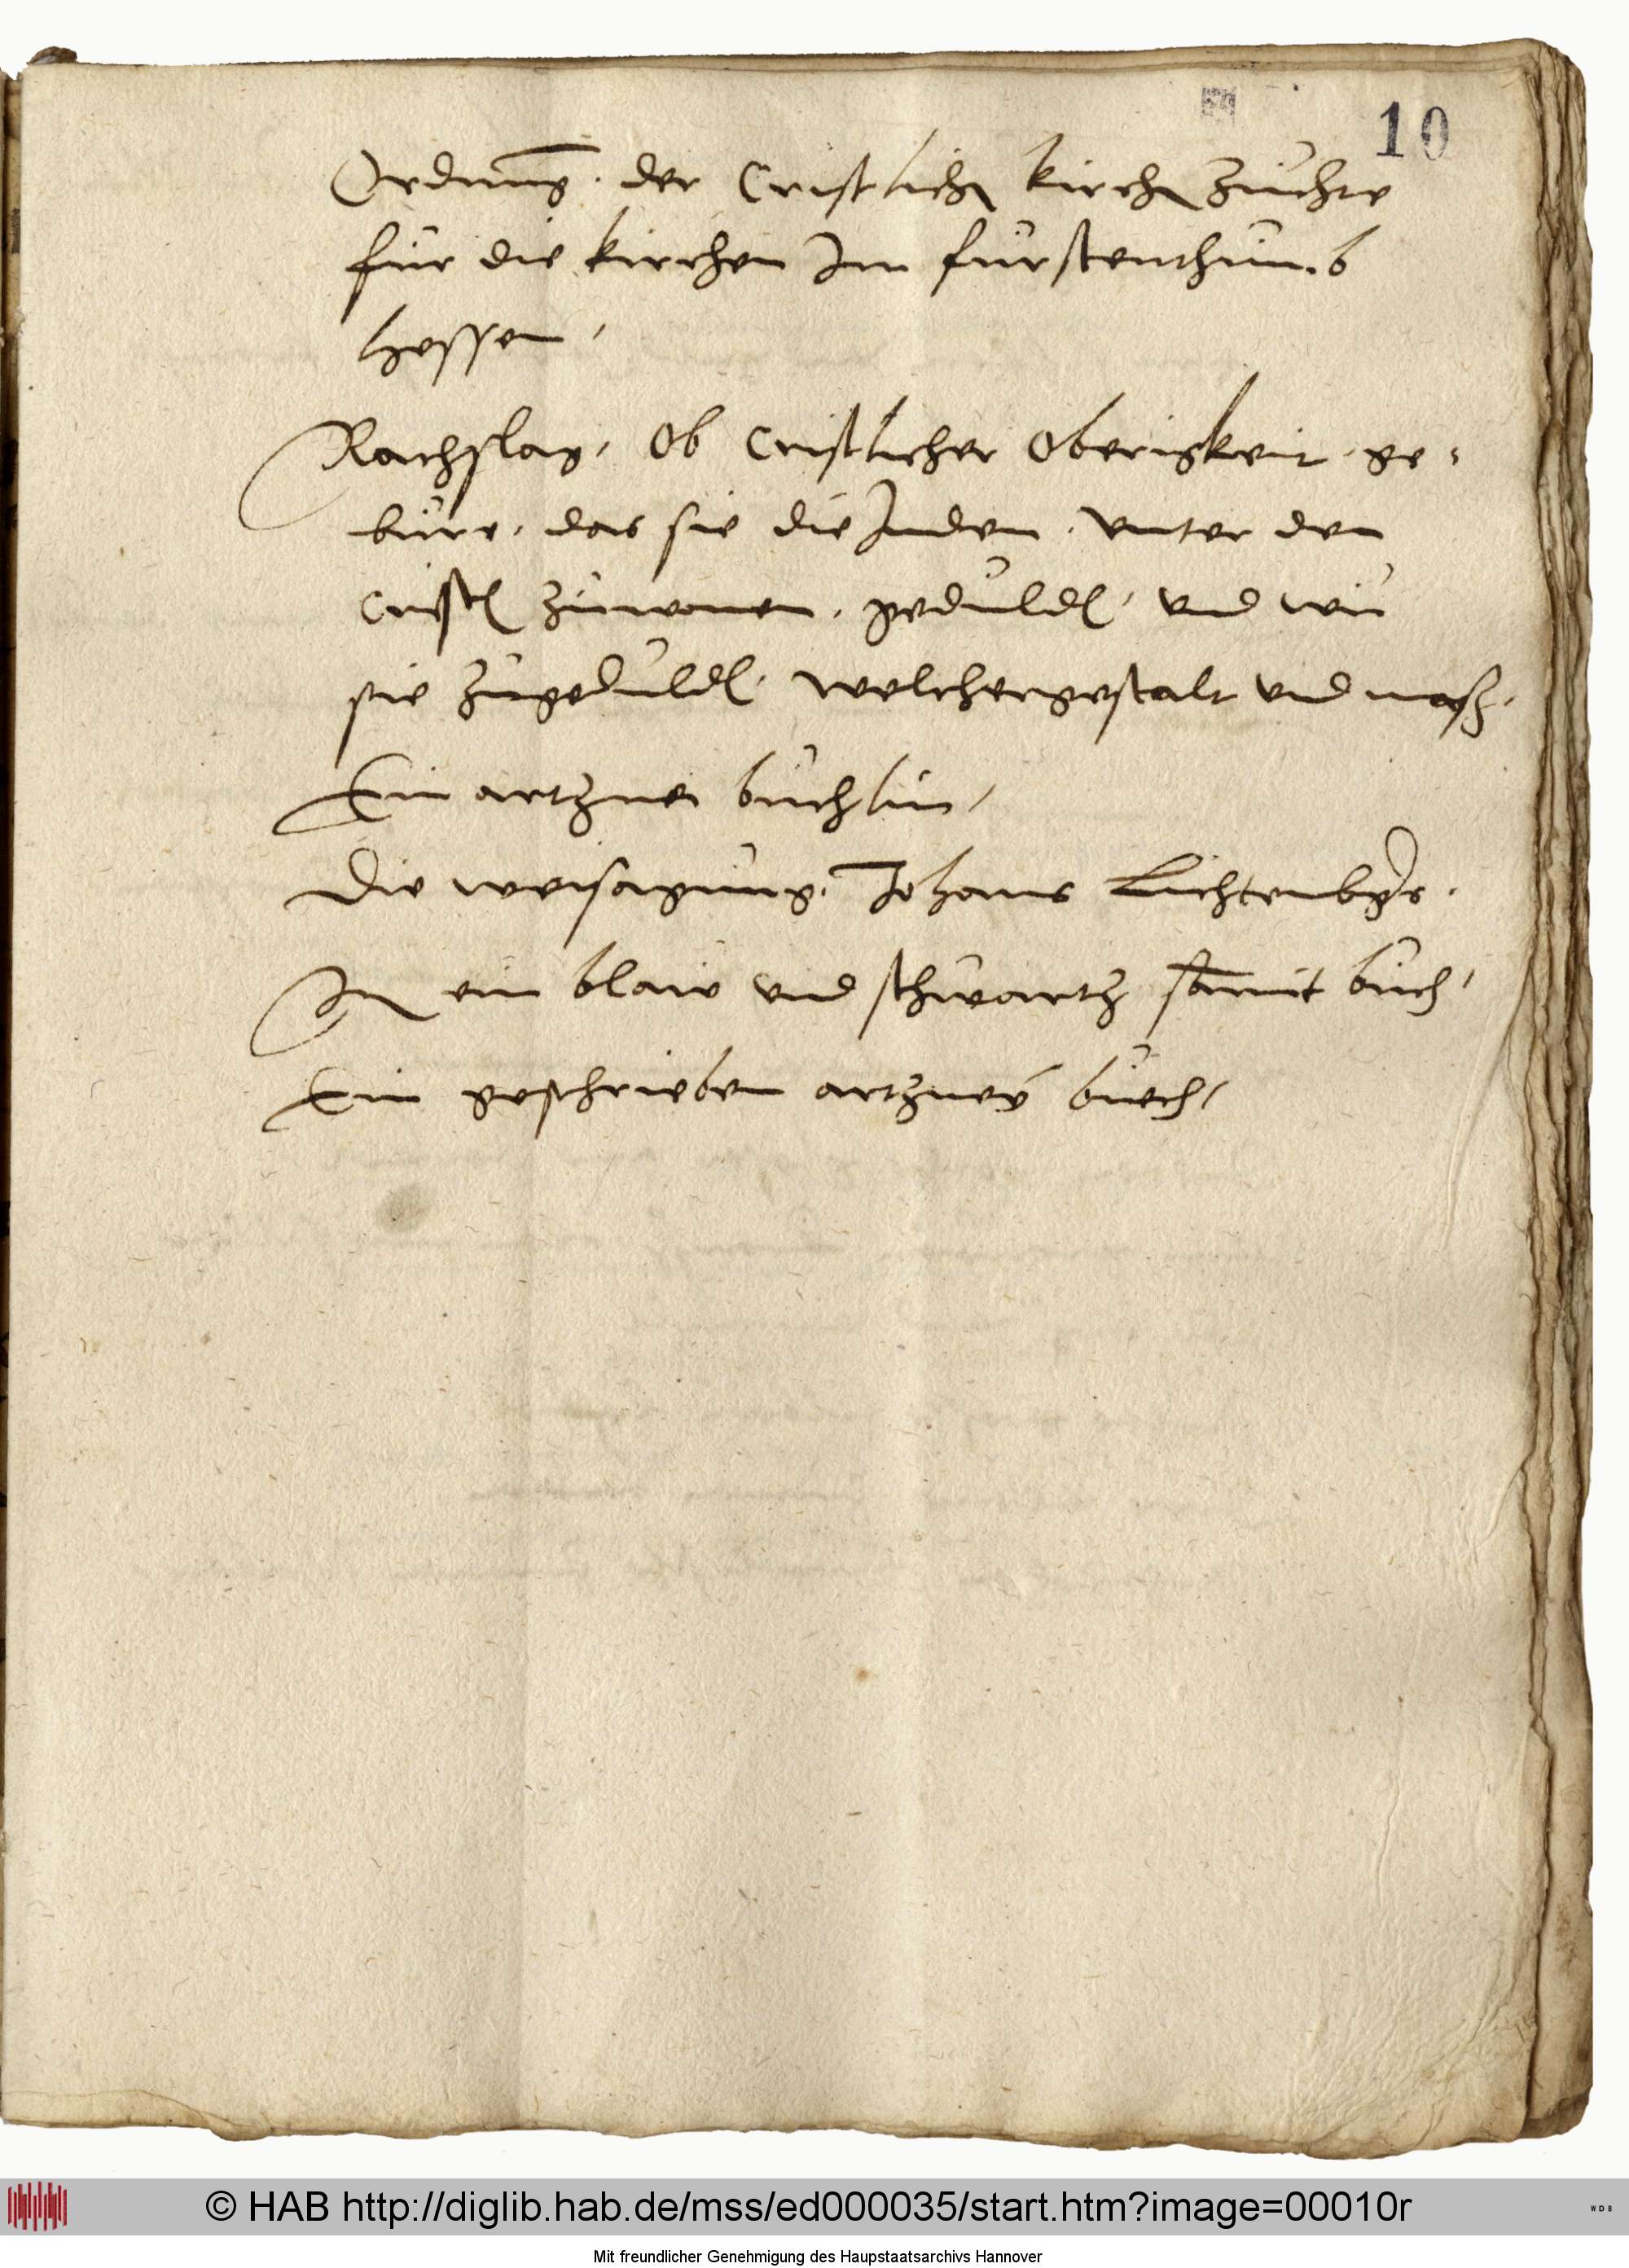 10
Ordnung. der Cristlichen kirchen zuchte
für die kirchen Im furstenthumb
hessen,
Rathslag, Ob Cristlicher Oberigkeit, ge-
bure, das sie die Juden, vnter den
Cristen zuwonen, gedulden, vnd wu
sie zugedulden, welchergestalt vnd mass,
Ein artznei buchlin,
Die weisagung, Johans Lichtenbergers.
In ein blaw und schwartz samit buch,
Ein geschrieben artzney buech,
© HAB http://diglib.hab.de/mss/ed000035/start.htm?image=00010r
WDB
Mit freundlicher Genehmigung des Haupstaatsarchivs Hannover